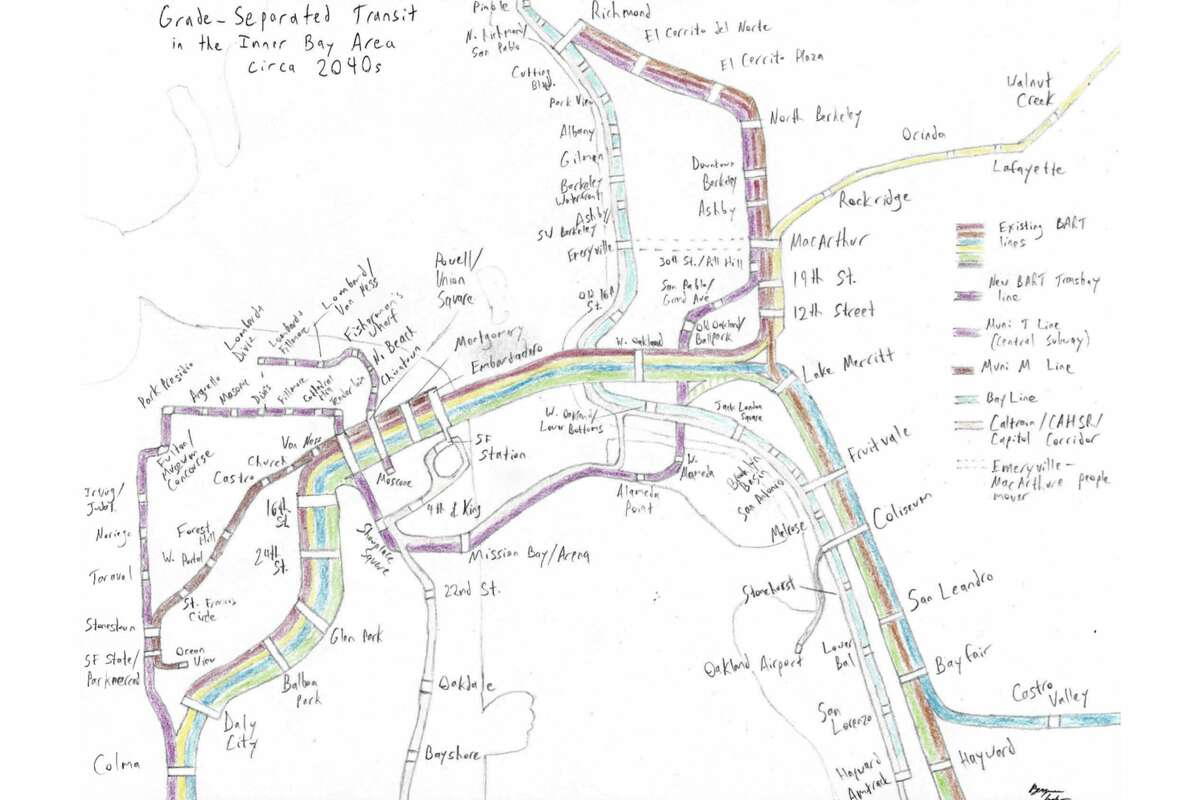 Grade-Separated Transit
in the Inner Bay Area
circa 2040s
Pinole
Richmond
El Cerrito del Norte
El Cerrito Plaza
N. Richmond/
San Pablo
Cutting
Blvd.
Park View
Albany
Gilman
Berkeley
Waterfront
Ashby/
SW Berkeley
Emeryville
Old 16th
St.
North Berkeley
Downtown
Berkeley
Ashby
MacArthur
30th St./Pill Hill
19th St.
San Pablo/
Grand Ave
12th Street
Old Oakland/
Ballpark
Walnut
Creek
Orinda
Lafayette
Rockridge
Existing BART
lines
New BART Transbay
line
Muni T Line
(Central Subway)
Muni M Line
Bay Line
Caltrain/CAHSR/
Capitol Corridor
Emeryville-
MacArthur people
mover
Powell/
Union
Square
Lombard/
Van Ness
Fisherman's
Wharf
N. Beach
Chinatown
Lombard/
Diviz
Lombard/
Fillmore
Montgomery
Embarcadero
W. Oakland
Lake Merritt
Park Presidio
Arguello
Masonic
Divis
Fillmore
Cathedral
Hill
Tenderloin
Fulton/
Museum
Concourse
Van Ness
Church
Castro
SF
Station
Moscone
4th & King
W. Oakland/
Lower Bottoms
Jack London
Square
Brooklyn
Basin
San Antonio
Fruitvale
W.
Alameda
Alameda
Point
Melrose
Coliseum
Irving/
Judah
Noriega
Taraval
Stonestown
SF State/
Parkmerced
Forest
Hill
W. Portal
St. Francis
Circle
Ocean
View
16th
St.
24th
St.
Showplace
Square
Mission Bay/Arena
22nd St.
Glen Park
Balboa
Park
Daly
City
Colma
Oakdale
Bayshore
Stonehurst
Oakland Airport
San Leandro
Lower
Bal
Bayfair
Castro
Valley
San
Lorenzo
Hayward
Amtrak
Hayward